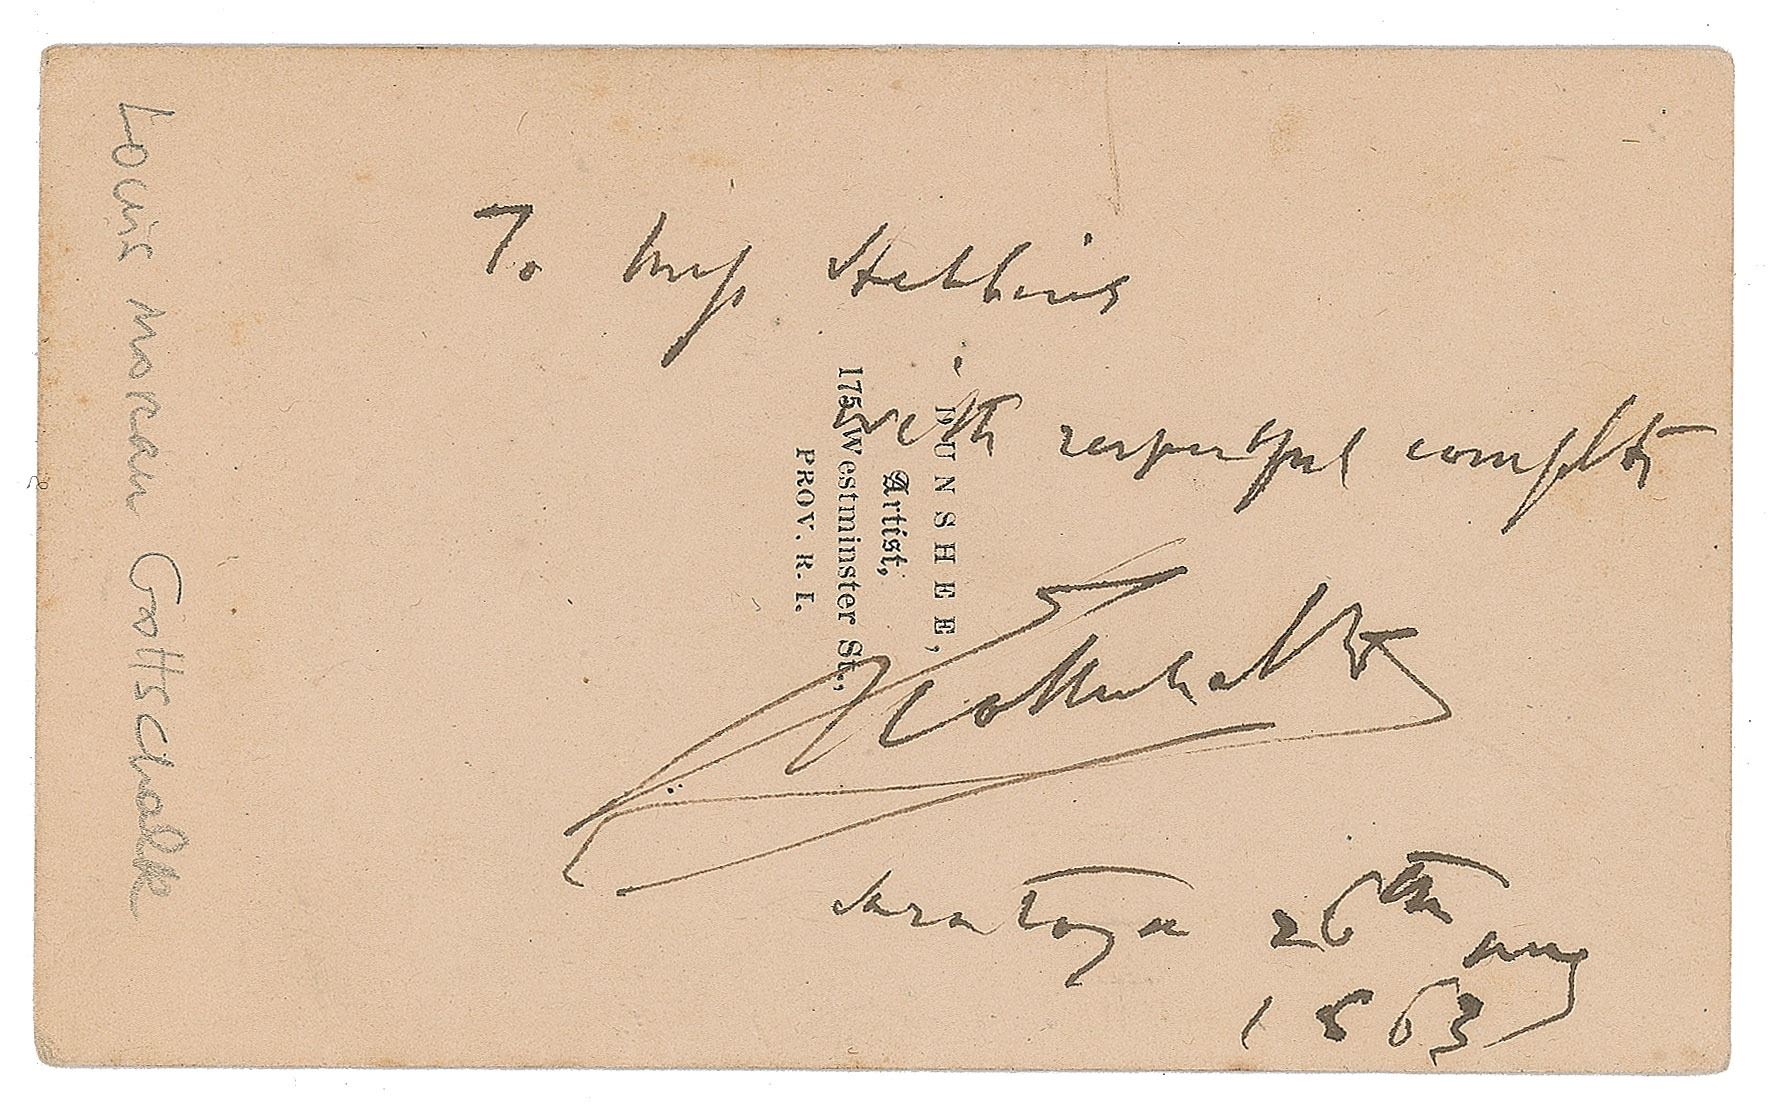 To Miss Stebbins
with respectful complts
Gottschalk
Saratoga 26th aug
1863
DUNSHEE,
Artist,
175 Westminster St.,
PROV. R. I.
Louis Moreau Gottschalk